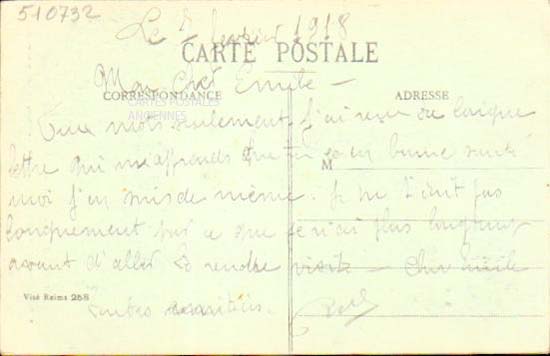 510732
Le 5 février 1918
CARTE POSTALE
Mon cher Emile -
CORRESPONDANCE
ADRESSE
CARTES POSTALES
ANCIENNES
mots seulement j'ai reçu ta
lettre qui m'apprends que tu es en bonne santé
M
moi j'en suis de même. Je ne t'écrit pas
longuement par ce que je n'ai plus longtemps
avant d'aller te rendre visite
Visé Reims 268